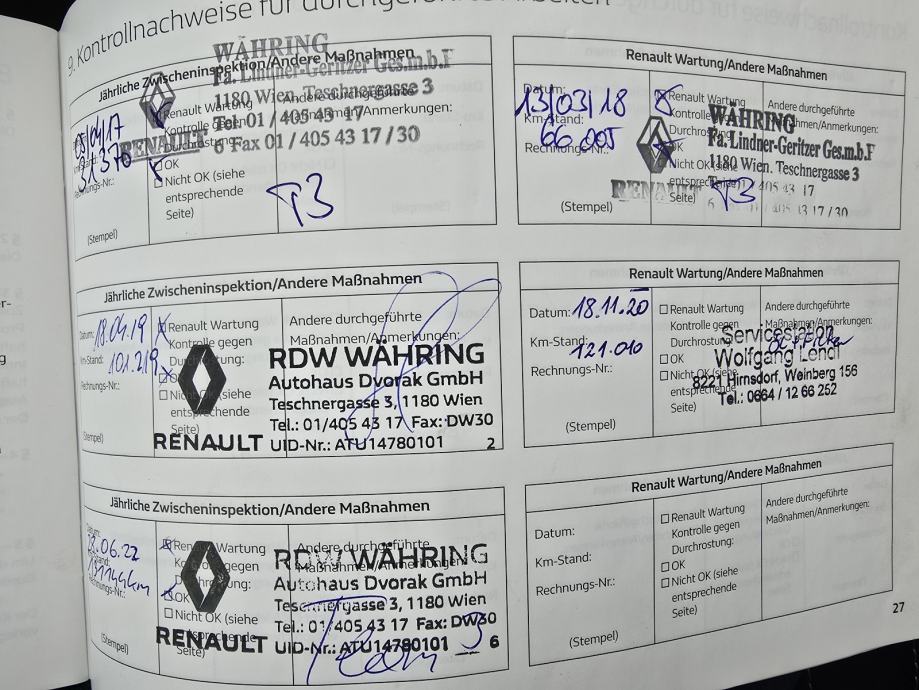 9. Kontrollnachweise für durchgeführte Arbeiten
Jährliche Zwischeninspektion/Andere Maßnahmen
WÄHRING
Fa. Lindner-Geritzer Ges.m.b.F
1180 Wien, Teschnergasse 3
Tel 01 / 405 43 17
6 Fax 01 / 405 43 17 / 30
RENAULT
/04/17
31 370
Rechnungs-Nr.:
Renault Wartung
Kontrolle gegen
Durchrostung:
OK
Nicht OK (siehe
entsprechende
Seite)
Andere durchgeführte
Maßnahmen/Anmerkungen:
T3
(Stempel)
Renault Wartung/Andere Maßnahmen
Datum: 13/03/18
Km-Stand: 66 005
Rechnungs-Nr.:
Renault Wartung
Kontrolle gegen
Durchrostung:
OK
Nicht OK (siehe
entsprechende
Seite)
Andere durchgeführte
Maßnahmen/Anmerkungen:
WÄHRING
Fa. Lindner-Geritzer Ges.m.b.F
1180 Wien, Teschnergasse 3
405 43 17
6 43 17 / 30
RENAULT
T3
(Stempel)
Jährliche Zwischeninspektion/Andere Maßnahmen
Datum: 18.04.19
Km-Stand: 101.219
Rechnungs-Nr.:
Renault Wartung
Kontrolle gegen
Durchrostung:
OK
Nicht OK (siehe
entsprechende
Seite)
Andere durchgeführte
Maßnahmen/Anmerkungen:
RDW WÄHRING
Autohaus Dvorak GmbH
Teschnergasse 3, 1180 Wien
Tel.: 01/405 43 17 Fax: DW30
UID-Nr.: ATU14780101 2
RENAULT
(Stempel)
Renault Wartung/Andere Maßnahmen
Datum: 18.11.20
Km-Stand: 121.010
Rechnungs-Nr.:
Renault Wartung
Kontrolle gegen
Durchrostung:
OK
Nicht OK (siehe
entsprechende
Seite)
Andere durchgeführte
Maßnahmen/Anmerkungen:
Servicestation
Wolfgang Lendl
8221 Hirnsdorf, Weinberg 156
Tel.: 0664 / 12 66 252
(Stempel)
Jährliche Zwischeninspektion/Andere Maßnahmen
Datum:
.06.22
131144km
Rechnungs-Nr.:
Renault Wartung
Kontrolle gegen
Durchrostung:
OK
Nicht OK (siehe
entsprechende
Seite)
Andere durchgeführte
Maßnahmen/Anmerkungen:
RDW WÄHRING
Autohaus Dvorak GmbH
Teschnergasse 3, 1180 Wien
Tel.: 01/405 43 17 Fax: DW30
UID-Nr.: ATU14780101 6
RENAULT
Team 3
(Stempel)
Renault Wartung/Andere Maßnahmen
Datum:
Km-Stand:
Rechnungs-Nr.:
Renault Wartung
Kontrolle gegen
Durchrostung:
OK
Nicht OK (siehe
entsprechende
Seite)
Andere durchgeführte
Maßnahmen/Anmerkungen:
(Stempel)
27